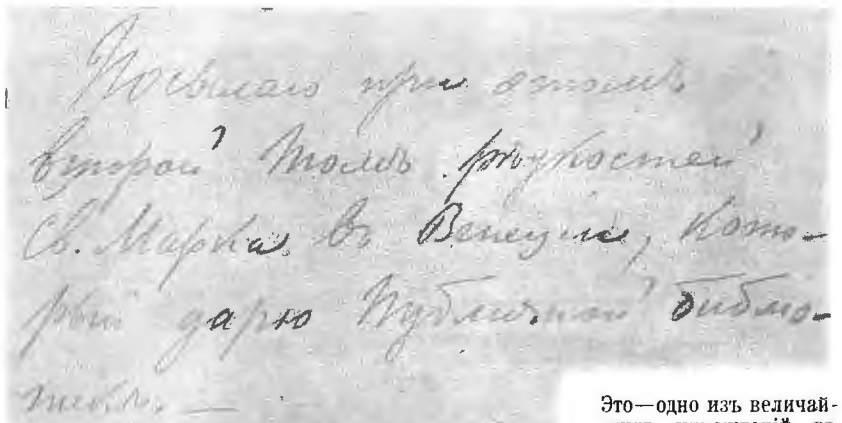 Посылаю при этомъ
второй томъ рѣдкостей
Св. Марка въ Венеціи, кото-
рый дарю Публичной библіо-
теки. —
Это—одно изъ величай-